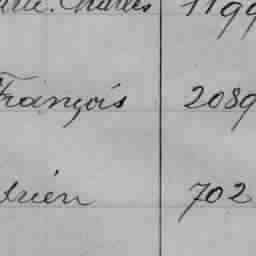 Charles 1199
François 2089
drien 702